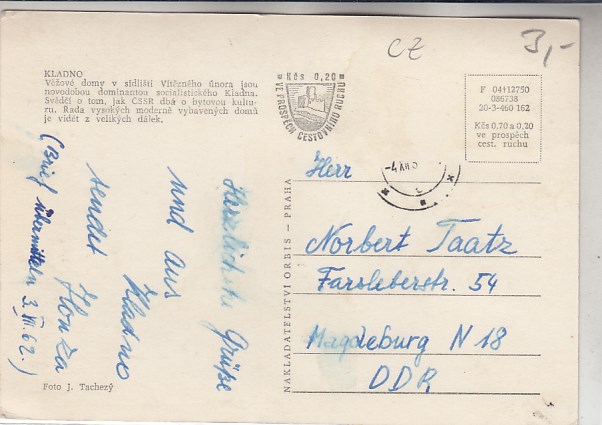 KLADNO
Věžové domy v sídlišti Vítězného února jsou
novodobou dominantou socialistického Kladna.
Svědčí o tom, jak ČSSR dbá o bytovou kultu-
ru. Řada vysokých moderně vybavených domů
je vidět z velikých dálek.
CZ
3,-
Kčs 0,20
VE PROSPĚCH CESTOVNÍHO RUCHU
F 04112750
086738
20-3-460 162
Kčs 0,70 a 0,20
ve prospěch
cest. ruchu
Herzlichste Grüße
und aus
Kladno
sendet
Honza
(Brief übermitteln 3.VII.62.)
NAKLADATELSTVÍ ORBIS — PRAHA
Herr
Norbert Taatz
Farsleberstr. 54
Magdeburg N 18
DDR
Foto J. Tachezý